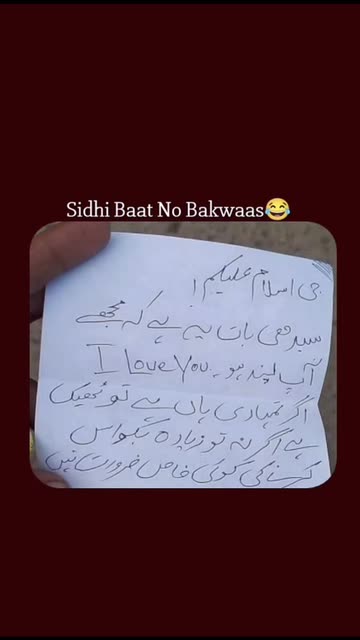 Sidhi Baat No Bakwaas😂
جی اسلام علیکم!
سیدھی بات یہ ہے کہ مجھے
آپ پسند ہو۔ I Love You
اگر تمہاری ہاں ہے تو ٹھیک
ہے اگر نہ تو زیادہ بکواس
کرنا کی کوئی خاص ضرورت نہیں